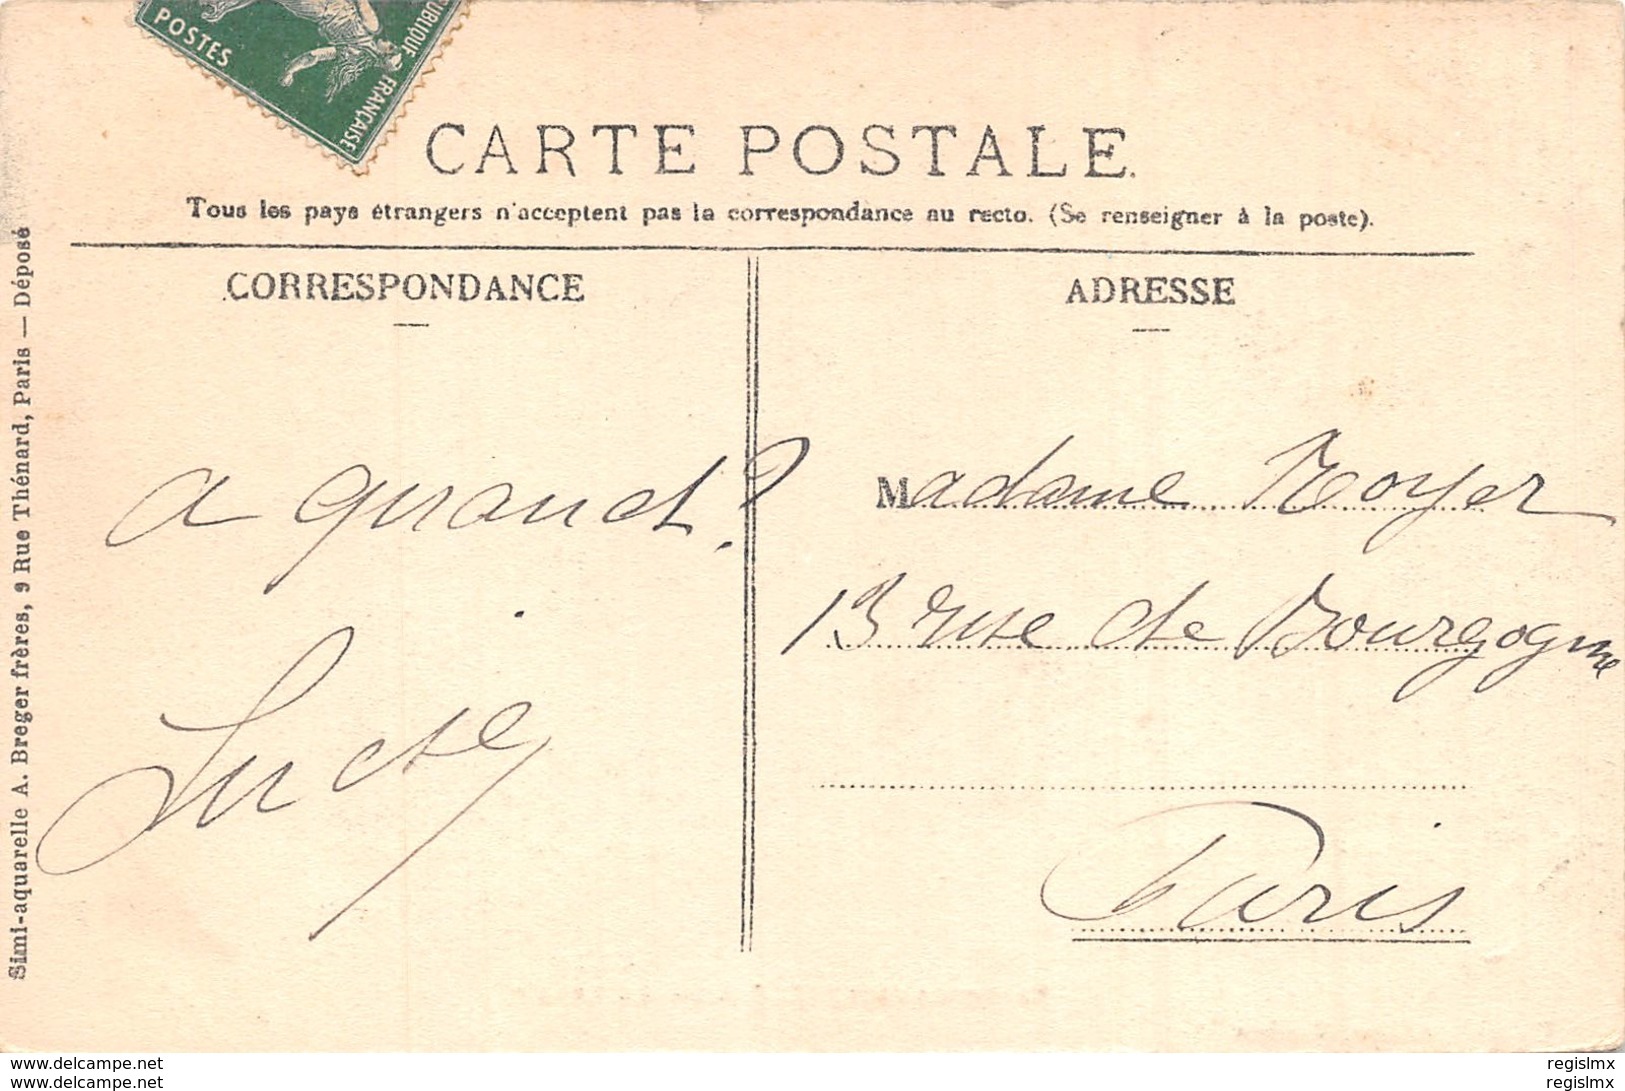 POSTES
RÉPUBLIQUE FRANÇAISE
CARTE POSTALE.
Tous les pays étrangers n'acceptent pas la correspondance au recto. (Se renseigner à la poste).
CORRESPONDANCE
a quand?
ADRESSE
Madame Royer
13 rue de Bourgogne
Paris
Simi-aquarelle A. Breger frères, 9 Rue Thénard, Paris — Déposé
www.delcampe.net
www.delcampe.net
regislmx
regislmx